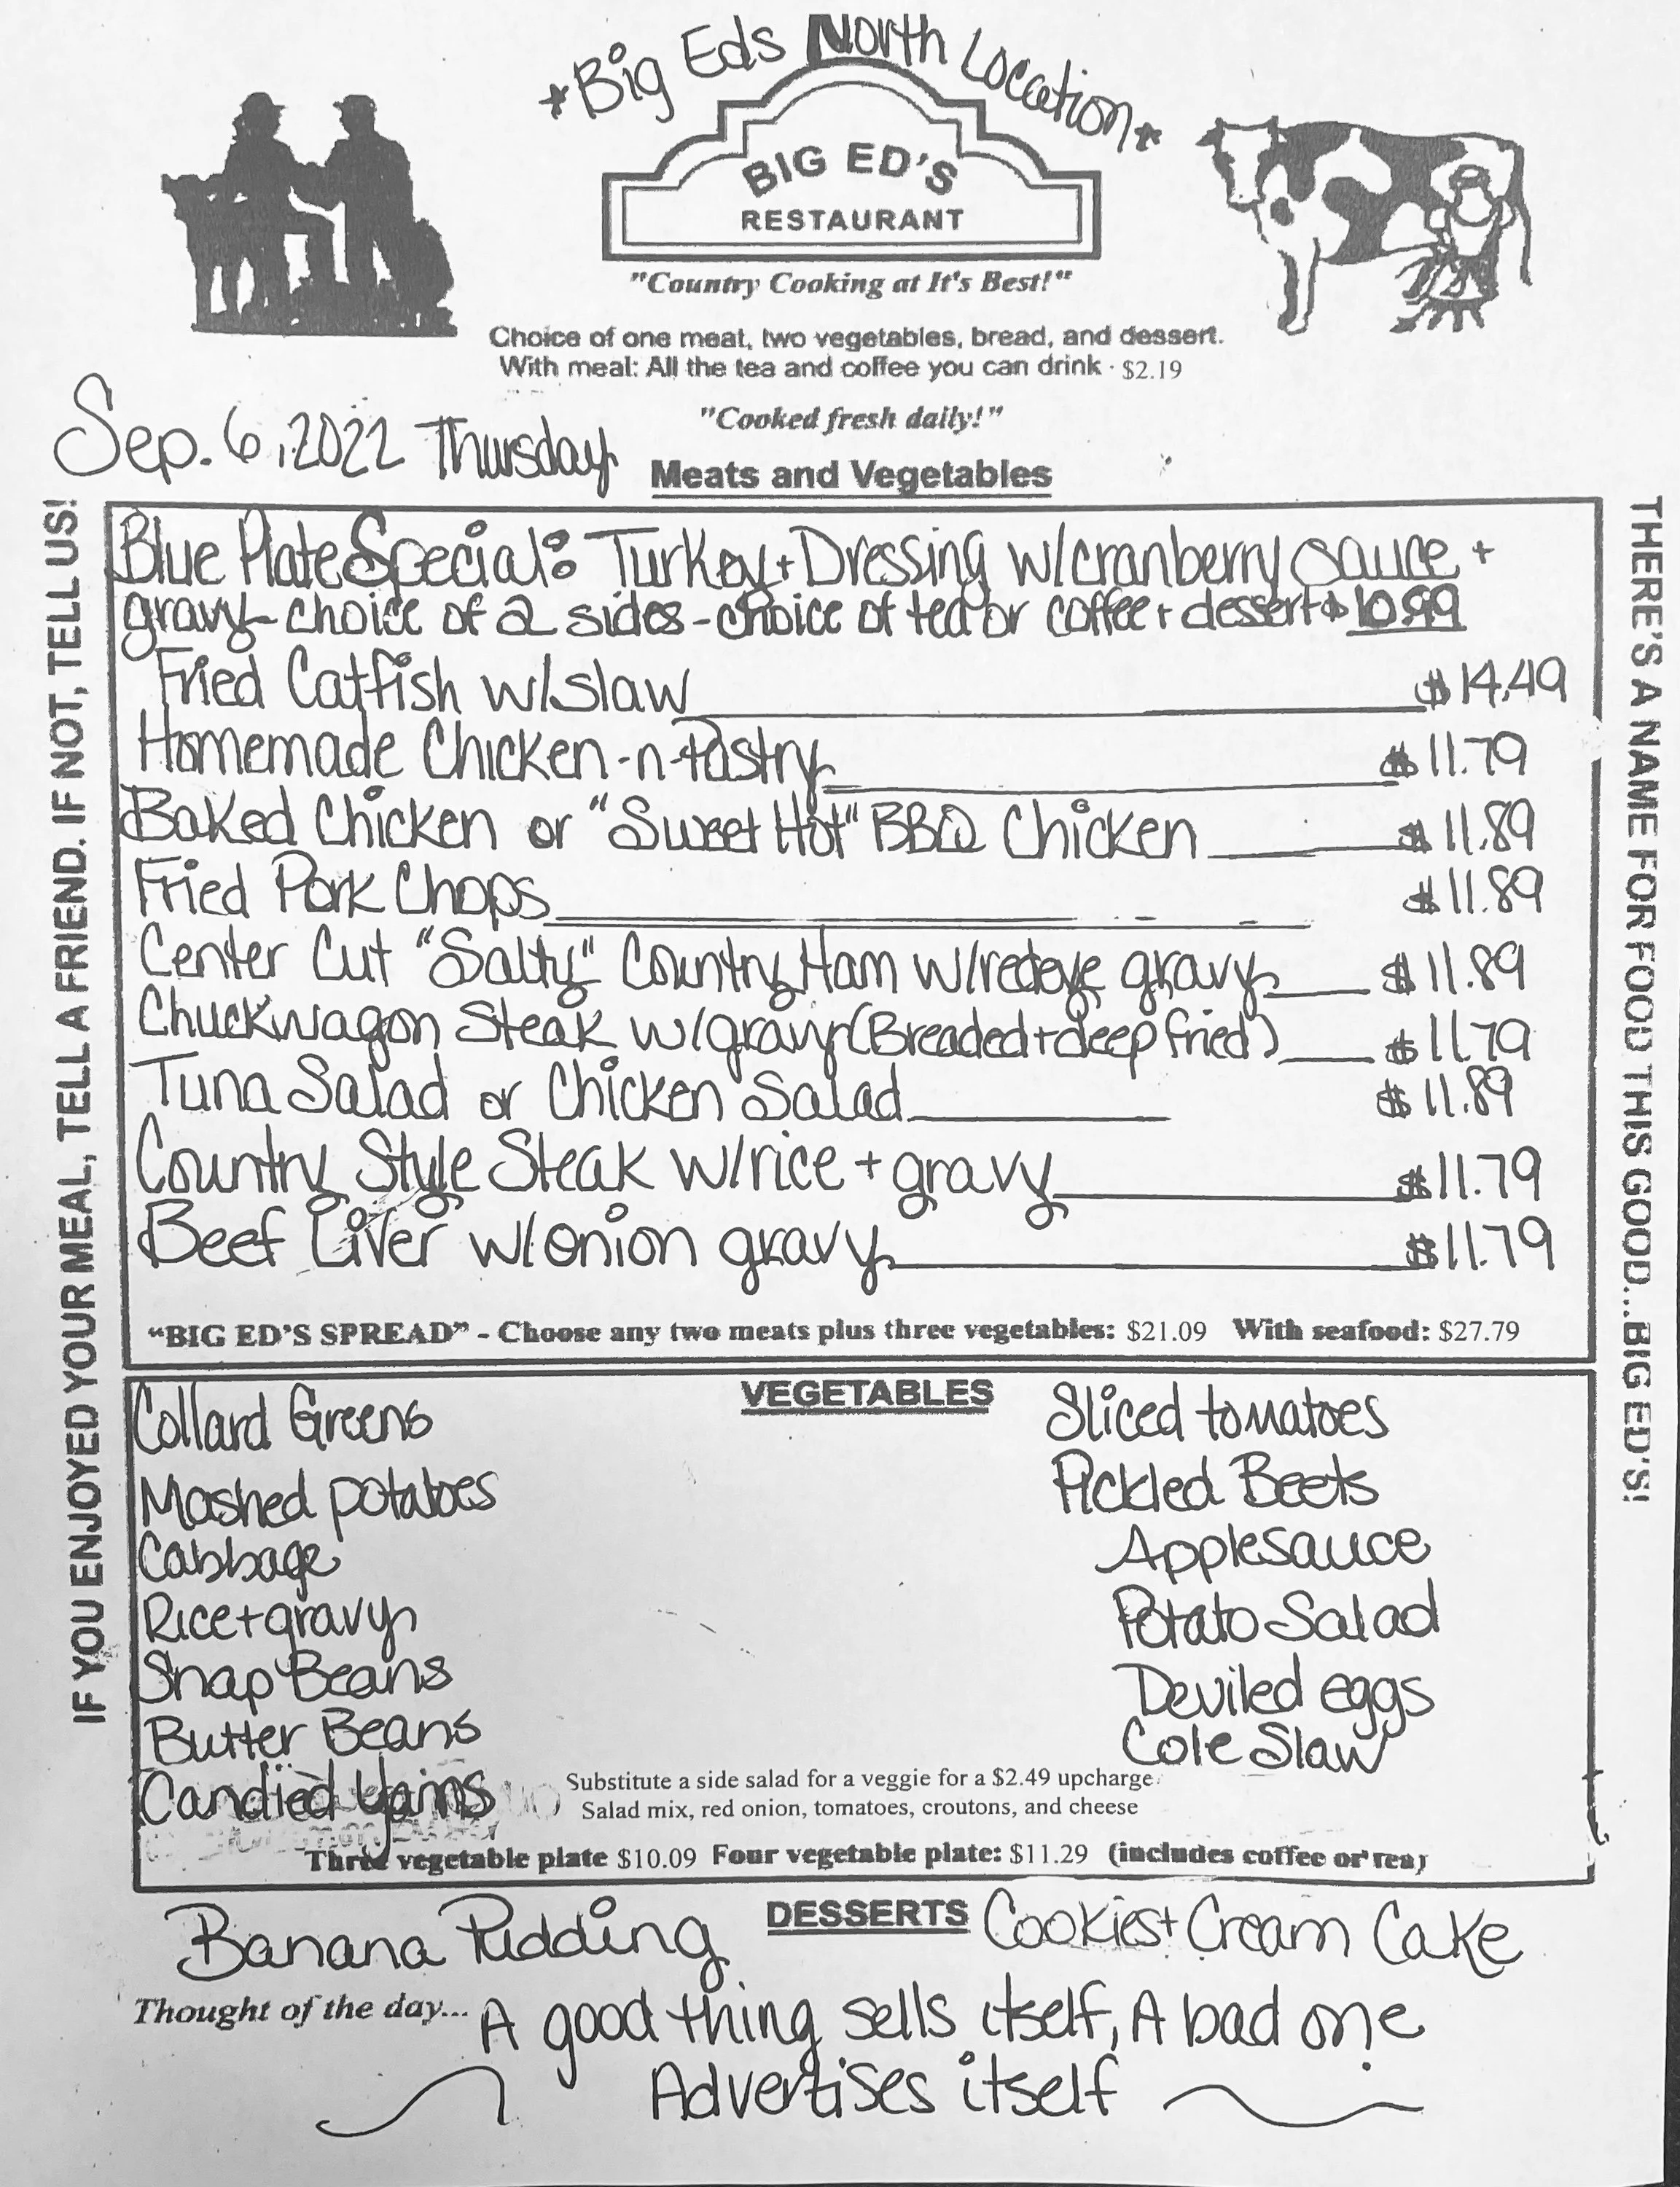 *Big Eds North Location*
BIG ED'S
RESTAURANT
"Country Cooking at It's Best!"
Choice of one meat, two vegetables, bread, and dessert.
With meal: All the tea and coffee you can drink · $2.19
"Cooked fresh daily!"
Sep. 6, 2022 Thursday
Meats and Vegetables
IF YOU ENJOYED YOUR MEAL, TELL A FRIEND. IF NOT, TELL US!
Blue Plate Special: Turkey + Dressing w/cranberry sauce +
gravy - choice of 2 sides - choice of tea or coffee + dessert $10.99
Fried Catfish w/slaw $14.49
Homemade Chicken-n-Pastry $11.79
Baked Chicken or "Sweet Hot" BBQ Chicken $11.89
Fried Pork Chops $11.89
Center Cut "Salty" Country Ham w/redeye gravy $11.89
Chuckwagon Steak w/gravy (Breaded + deep fried) $11.79
Tuna Salad or Chicken Salad $11.89
Country Style Steak w/rice + gravy $11.79
Beef Liver w/onion gravy $11.79
"BIG ED'S SPREAD" - Choose any two meats plus three vegetables: $21.09 With seafood: $27.79
THERE'S A NAME FOR FOOD THIS GOOD...BIG ED'S!
VEGETABLES
Collard Greens
Mashed potatoes
Cabbage
Rice + gravy
Snap Beans
Butter Beans
Candied Yams
Sliced tomatoes
Pickled Beets
Applesauce
Potato Salad
Deviled eggs
Cole Slaw
Substitute a side salad for a veggie for a $2.49 upcharge.
Salad mix, red onion, tomatoes, croutons, and cheese
Three vegetable plate $10.09 Four vegetable plate: $11.29 (includes coffee or tea)
DESSERTS
Banana Pudding
Cookies + Cream Cake
Thought of the day... A good thing sells itself, A bad one
Advertises itself